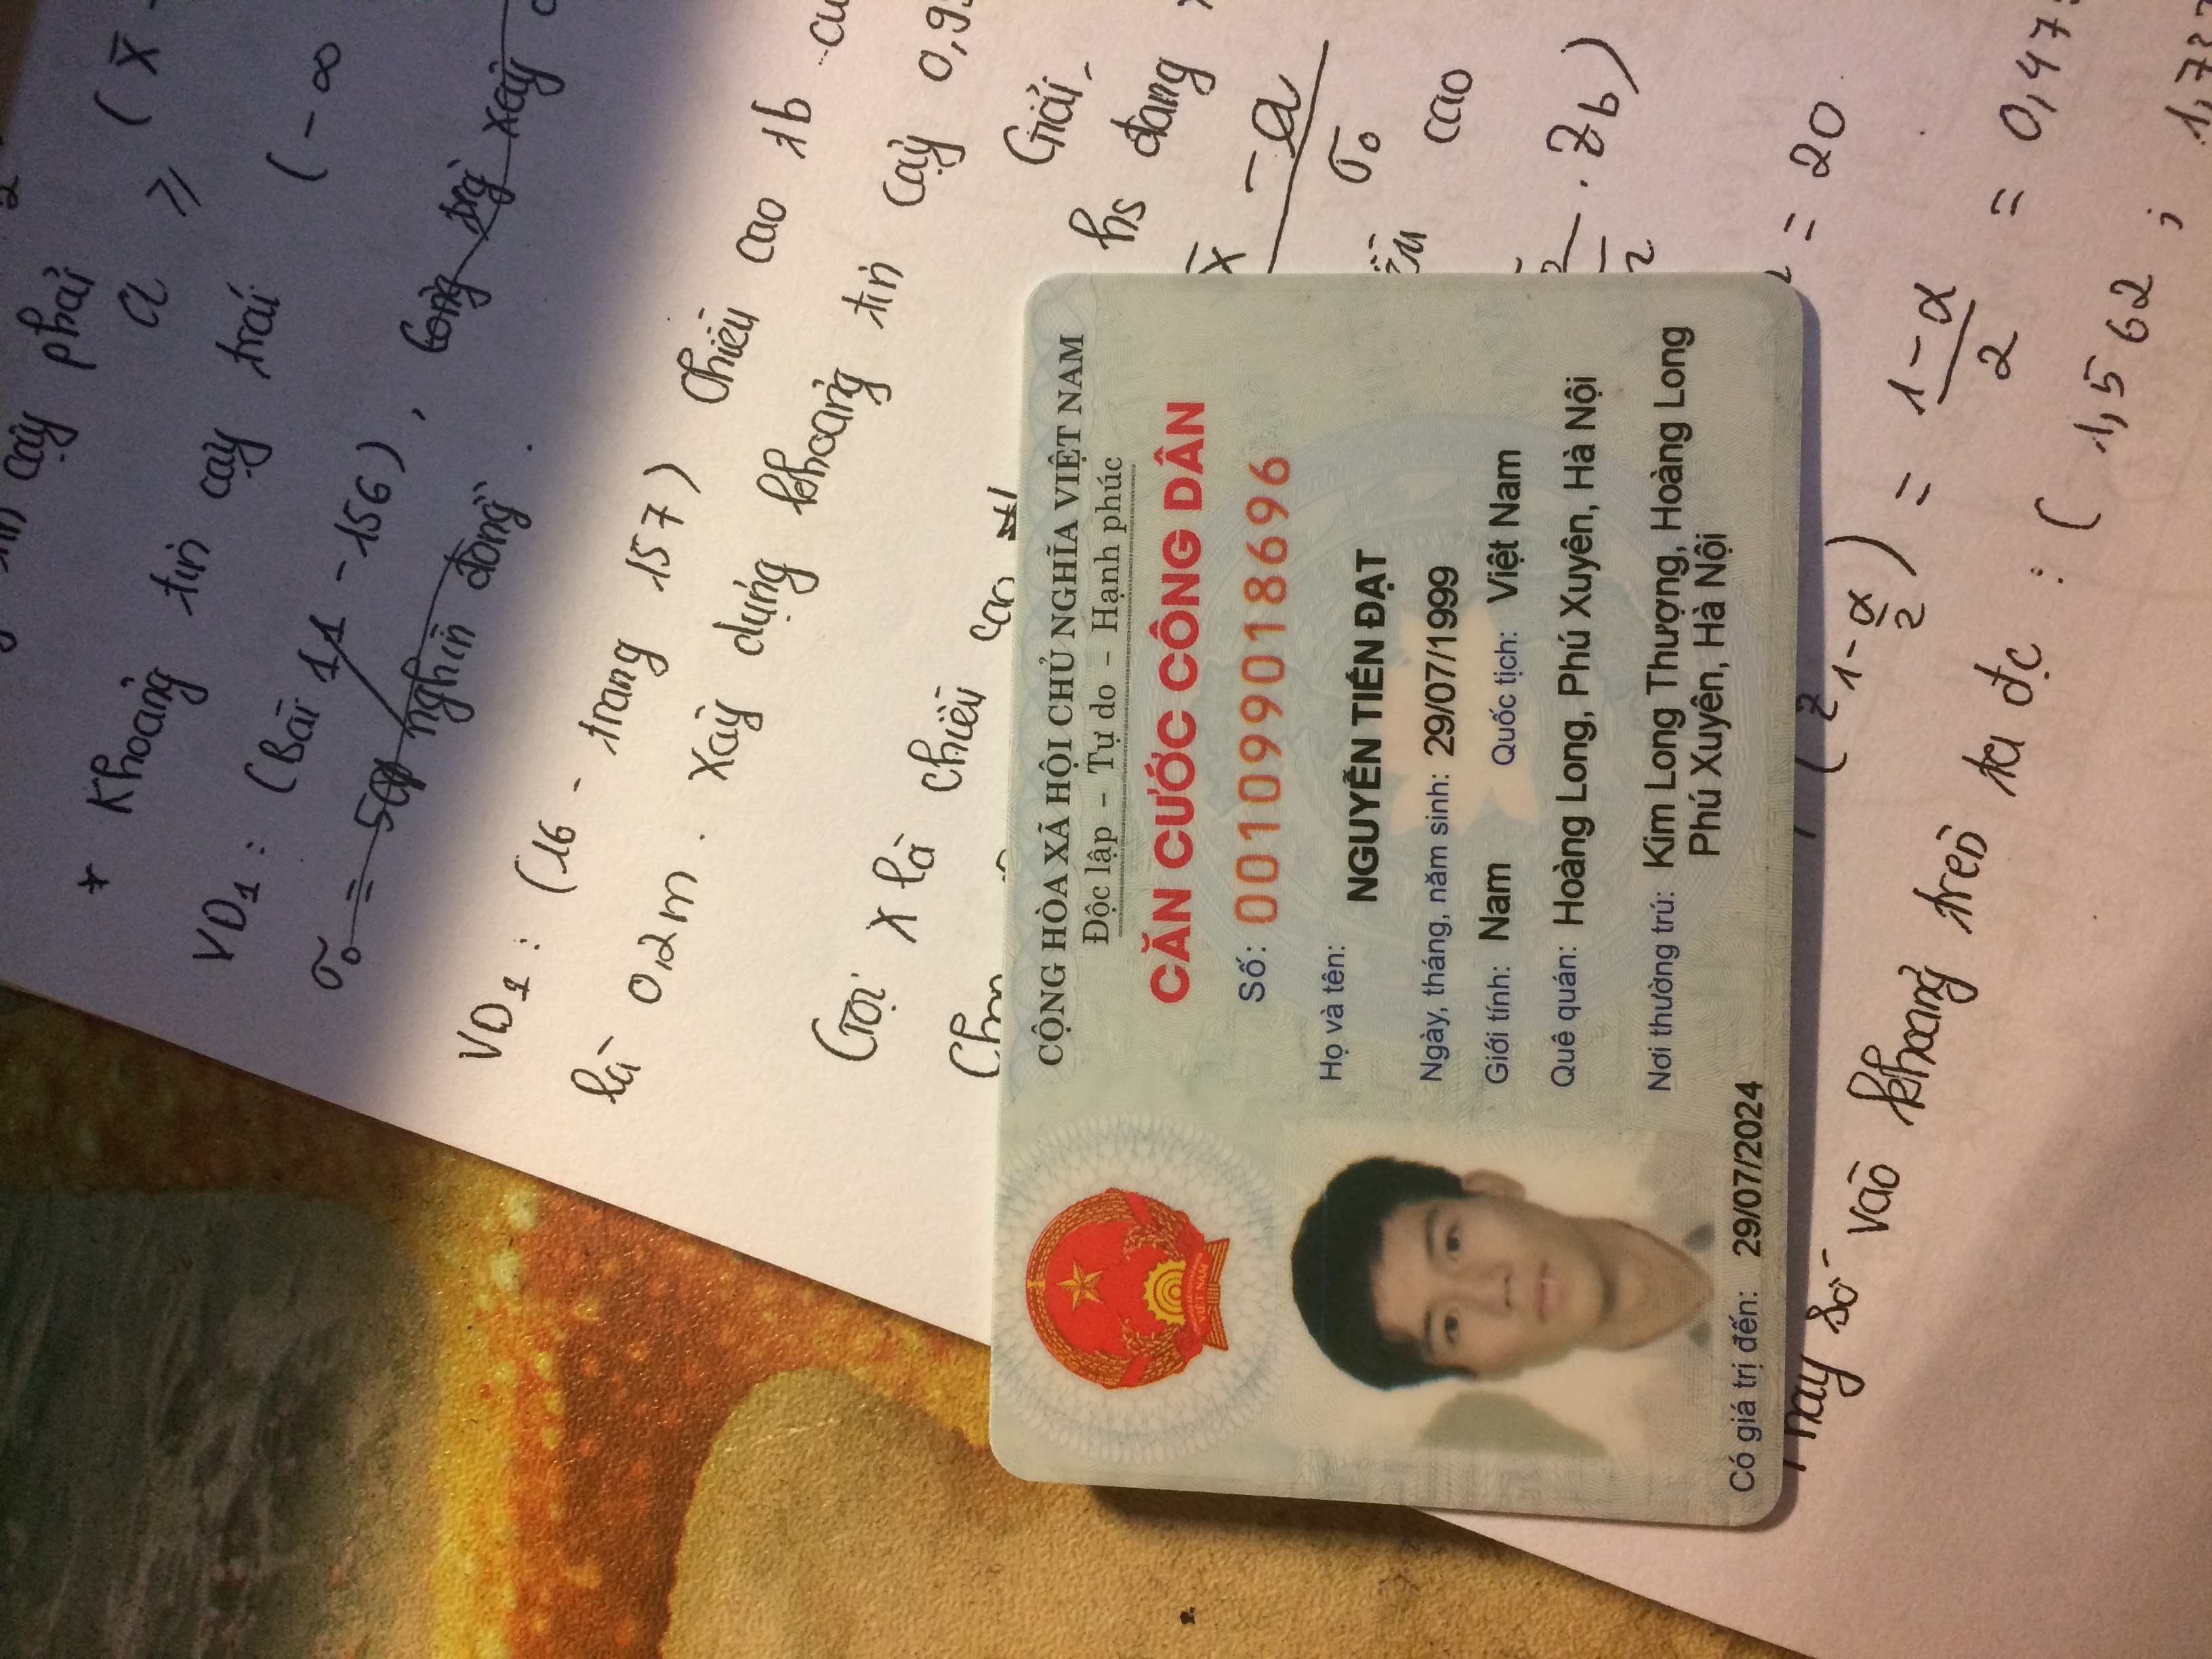 cạy phải
a ⩾ ( X̄
* Khoảng tin cạy trái ( - ∞
VD1 : (Bài 11 - 156) , Công trg xây
σ₀ = nghìn đồng .
VD1 : (16 - trang 157) Chiều cao tb
là 0,2m . Xây dựng khoảng tin cạy
Giải
Gọi X là chiều cao hs đang
Chọn
X̄ - a
σ₀
cao
. Zb )
2
= 20
( Z 1 - α/2 ) = 1 - α / 2 = 0,47
Thay số vào khoảng trên ta đc : ( 1,562 ;
CỘNG HÒA XÃ HỘI CHỦ NGHĨA VIỆT NAM
Độc lập – Tự do – Hạnh phúc
CĂN CƯỚC CÔNG DÂN
Số: 001099018696
Họ và tên:
NGUYỄN TIẾN ĐẠT
Ngày, tháng, năm sinh: 29/07/1999
Giới tính: Nam Quốc tịch: Việt Nam
Quê quán: Hoàng Long, Phú Xuyên, Hà Nội
Nơi thường trú: Kim Long Thượng, Hoàng Long
Phú Xuyên, Hà Nội
Có giá trị đến: 29/07/2024
VIỆT NAM